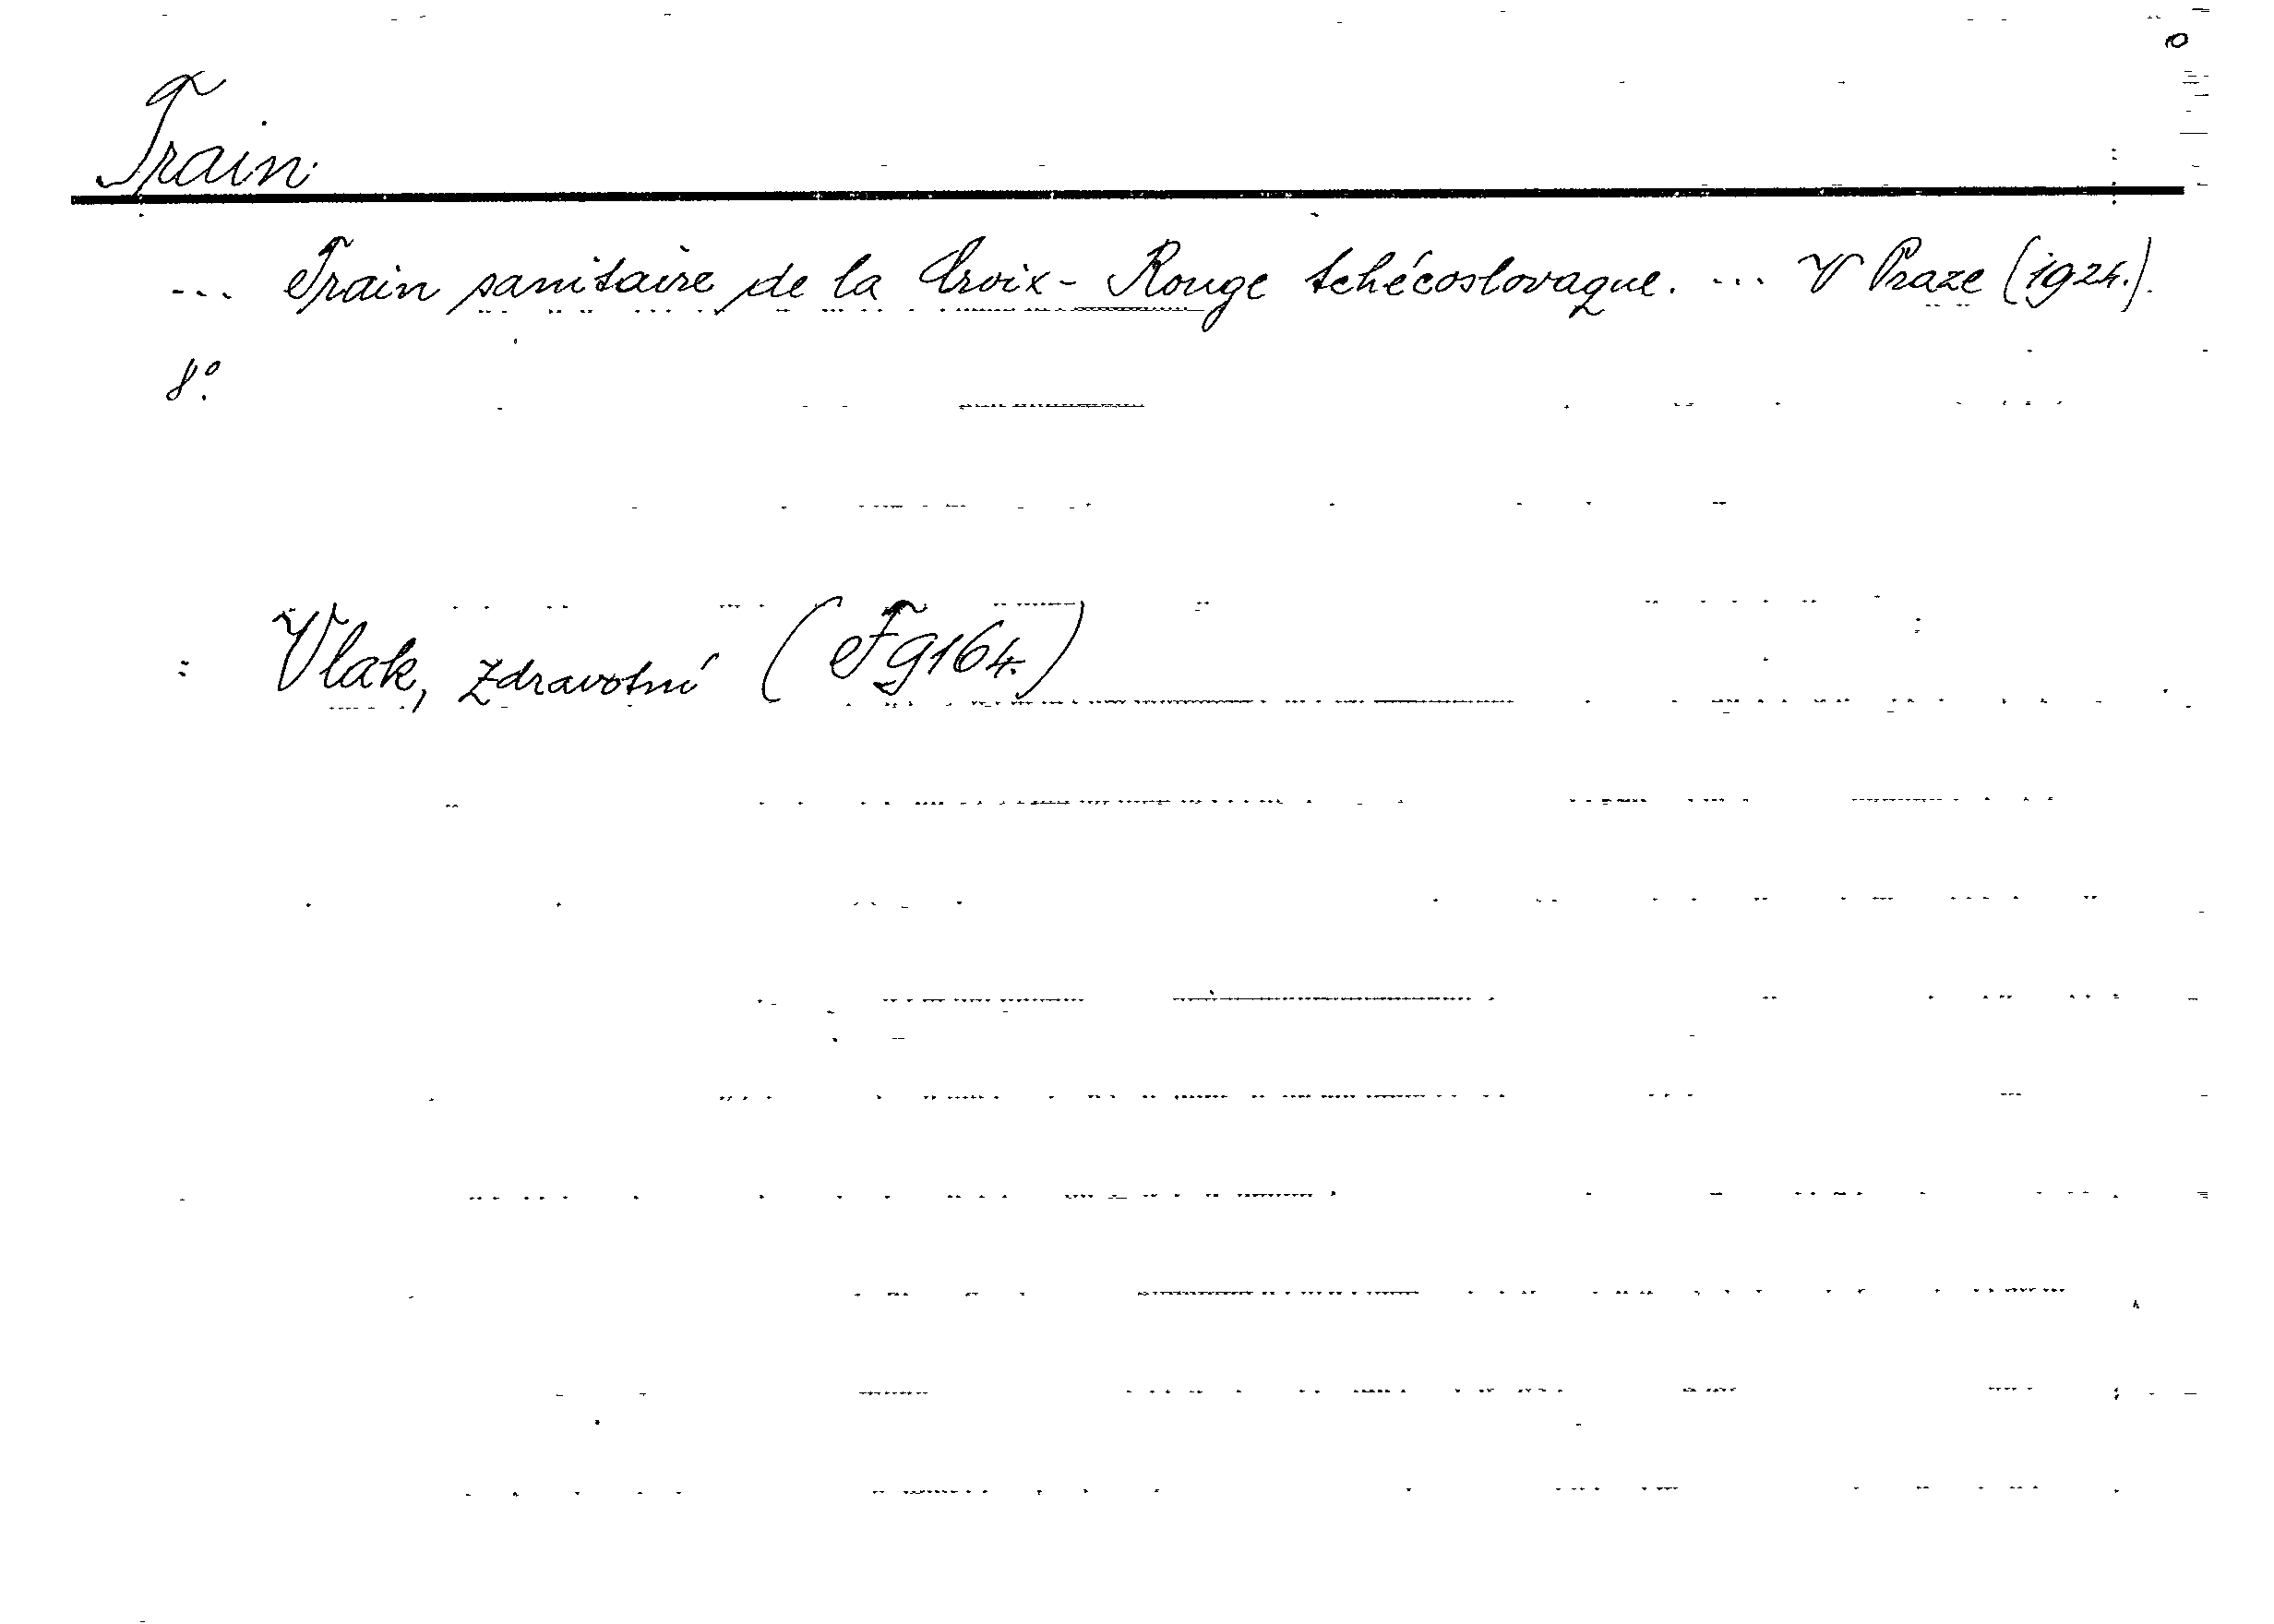 Train.
... Train sanitaire de la Croix-Rouge tchécoslovaque. ... V Praze (1924.).
8°.
: Vlak, zdravotní (Tg164.)